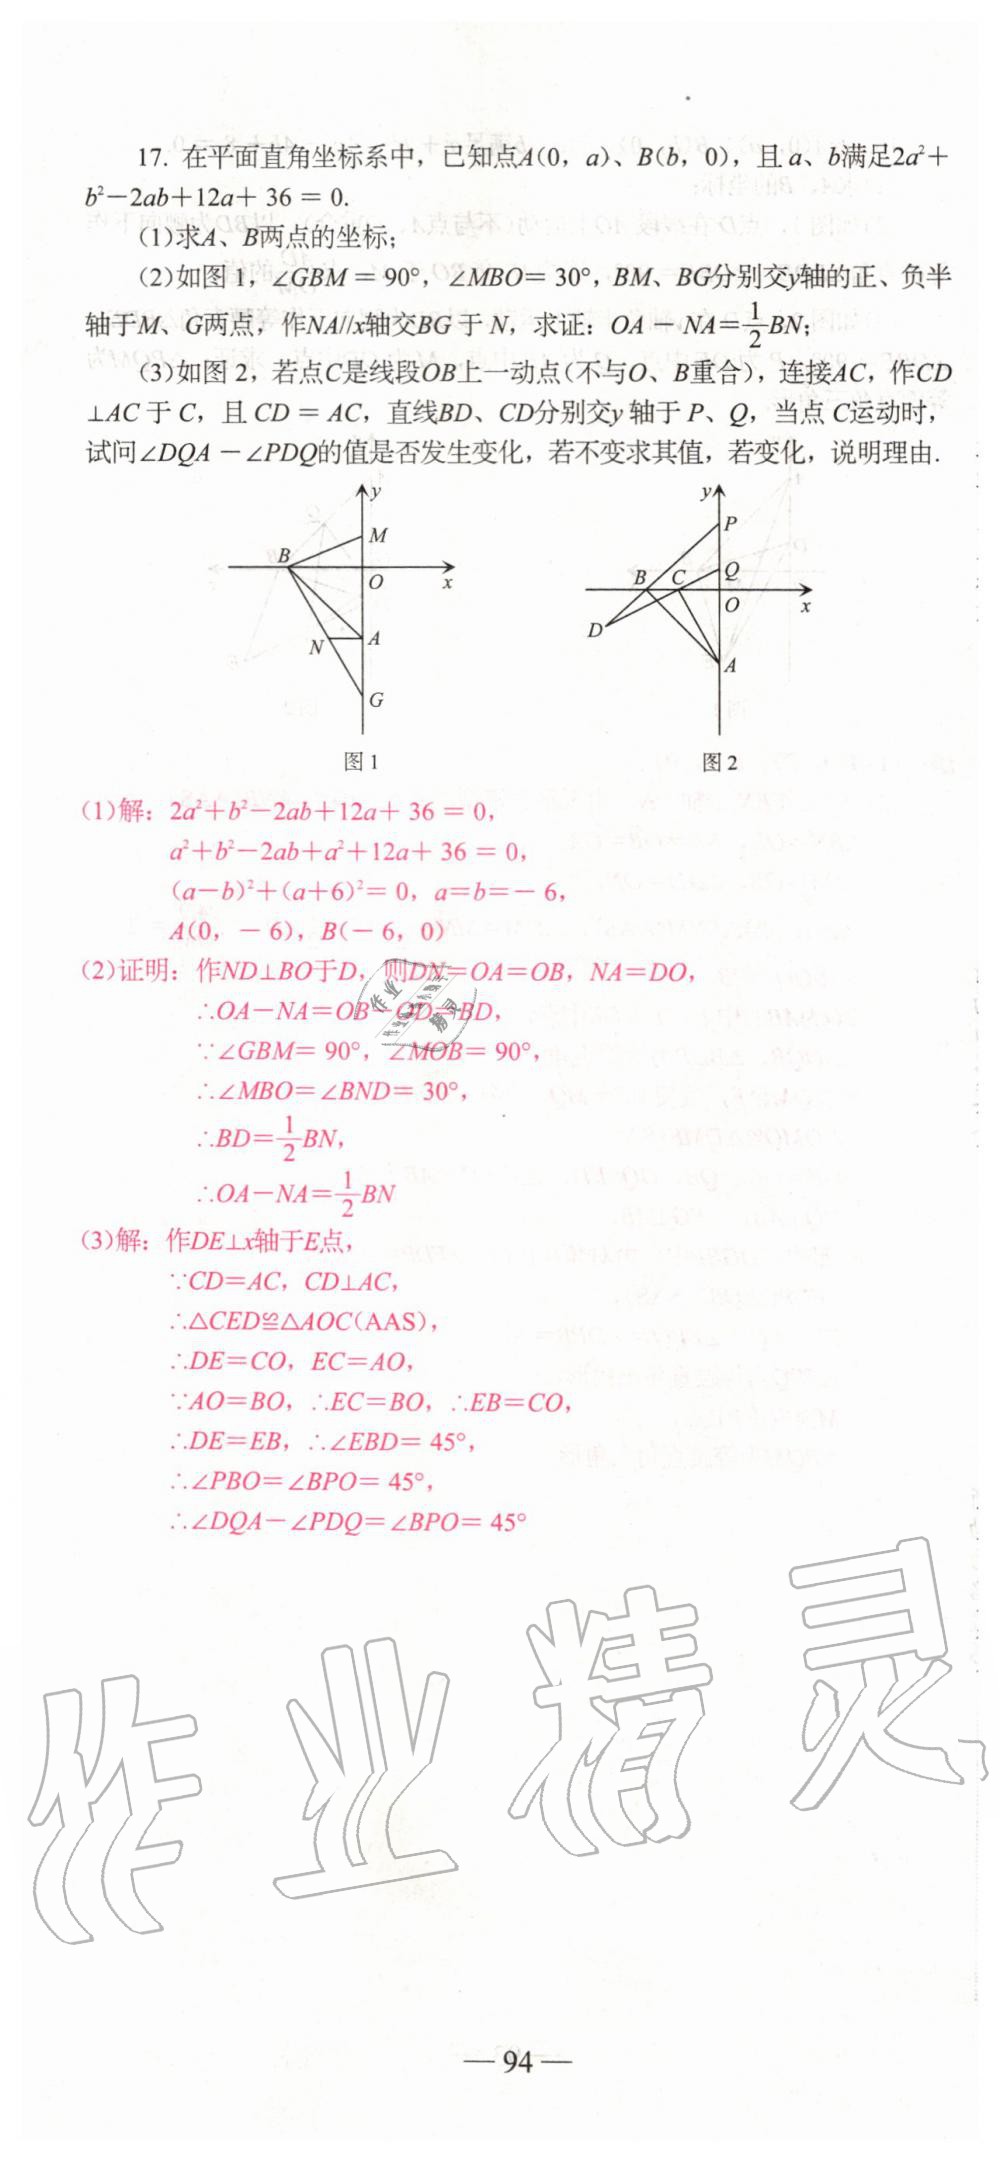 17. 在平面直角坐标系中，已知点A(0，a)、B(b，0)，且 a、b满足2a²＋
b²－2ab＋12a＋36 = 0.
(1)求A、B两点的坐标；
(2)如图 1，∠GBM = 90°，∠MBO= 30°，BM、BG分别交y轴的正、负半
轴于 M、G两点，作NA//x轴交BG 于 N，求证：OA－NA＝1/2BN；
(3)如图 2，若点C是线段OB上一动点(不与O、B重合)，连接AC，作CD
⊥AC 于 C，且 CD = AC，直线BD、CD分别交y 轴于 P、Q，当点 C运动时，
试问∠DQA －∠PDQ的值是否发生变化，若不变求其值，若变化，说明理由.
y
M
B
O
x
N
A
G
图 1
y
P
Q
B
C
O
x
D
A
图 2
(1)解：2a²＋b²－2ab＋12a＋36 = 0，
a²＋b²－2ab＋a²＋12a＋36 = 0，
(a－b)²＋(a＋6)²= 0，a＝b＝－6，
A(0，－6)，B(－6，0)
(2)证明：作ND⊥BO于D，则DN＝OA＝OB，NA＝DO，
∴OA－NA＝OB－OD＝BD，
∵∠GBM= 90°，∠MOB= 90°，
∴∠MBO＝∠BND＝30°，
∴BD＝1/2BN，
∴OA－NA＝1/2BN
(3)解：作DE⊥x轴于E点，
∵CD＝AC，CD⊥AC，
∴△CED≌△AOC(AAS)，
∴DE＝CO，EC＝AO，
∵AO＝BO，∴EC＝BO，∴EB＝CO，
∴DE＝EB，∴∠EBD＝45°，
∴∠PBO＝∠BPO＝45°，
∴∠DQA－∠PDQ＝∠BPO＝45°
作业精灵
— 94 —